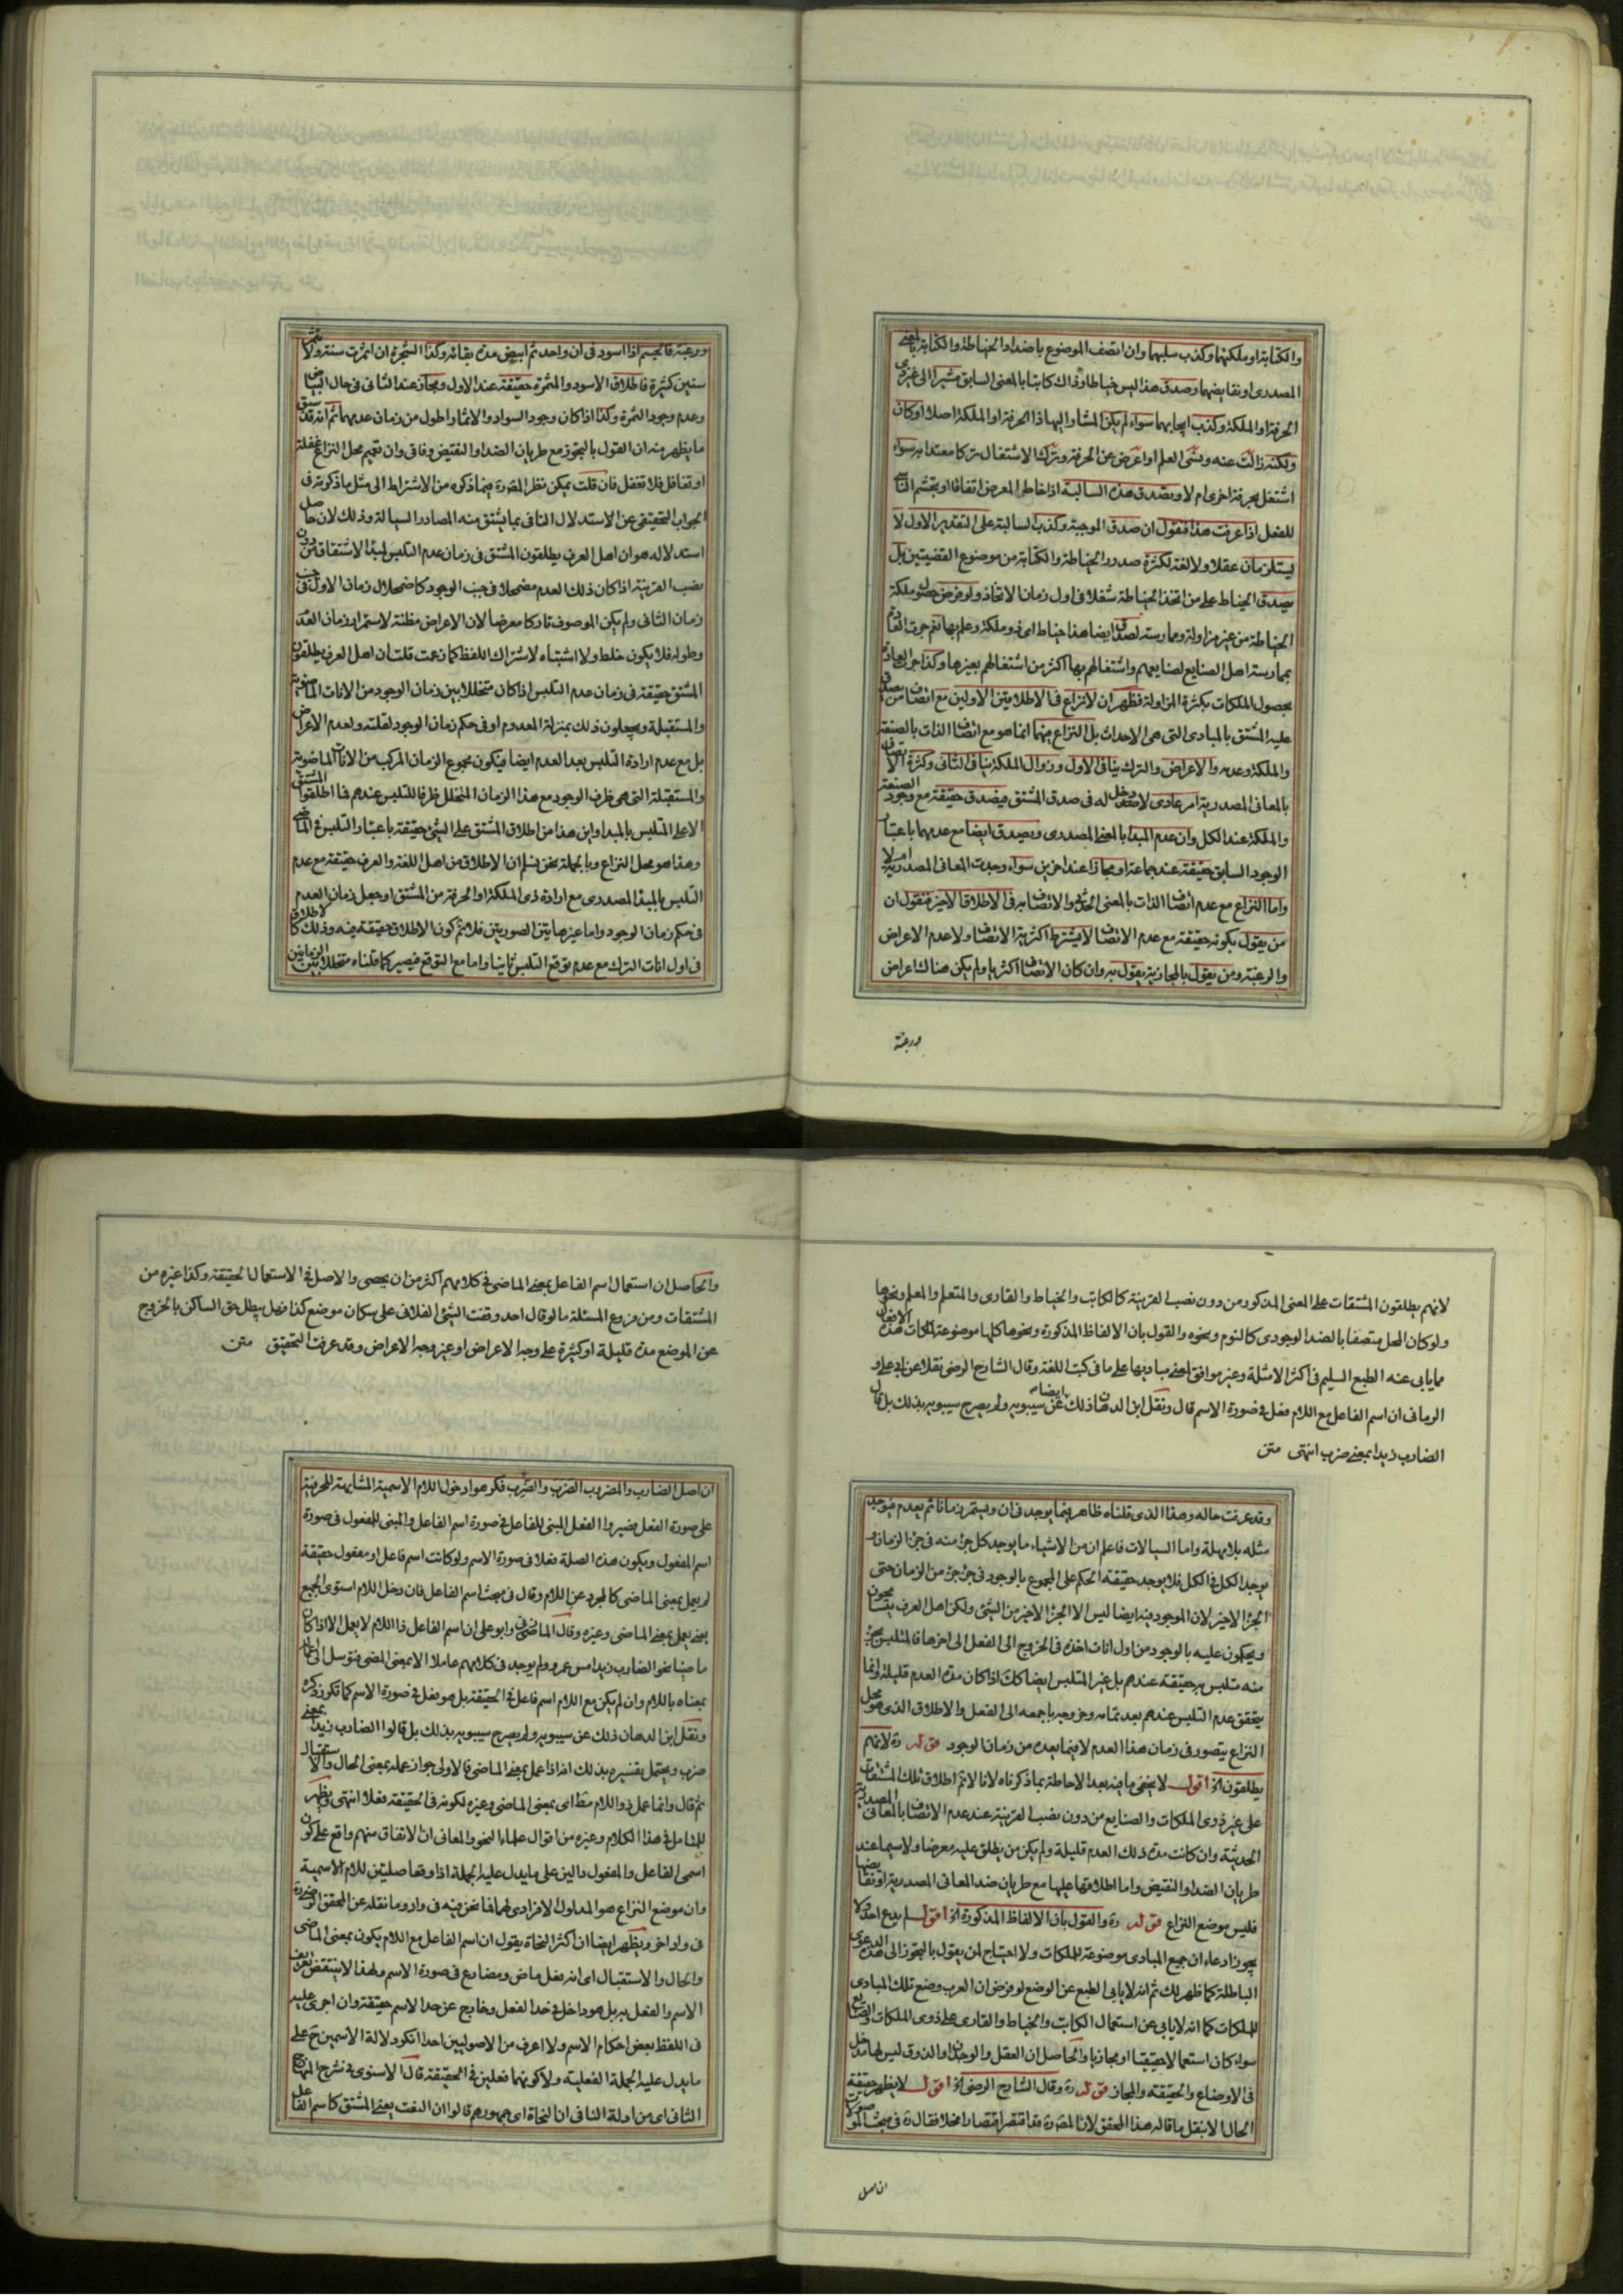 والكتابة او ملكتهما وكذب سلبهما وان اتصف الموضوع باضداد الخياطة والكتابة بالمعنى
المصدرى او نقايضهما وصدق هذا ليس خياطا وذاك كاتبا بالمعنى السابق مشيرا الى غير ذى
الحرفة او الملكة وكذب ايجابهما سواء لم يكن المشار اليها ذا الحرفة او الملكة اصلا او كان
ولكنه زالت عنه ونسى العلم او اعرض عن الحرفة وترك الاشتغال تركا معتدا به سواء
اشتغل بحرفة اخرى ام لا وتصدق هذه السالبة اذا خاطر المعرض اتفاقا او تجشم الناسى
للفعل اذا عرفت هذا فنقول ان صدق الموجبة وكذب السالبة على التقدير الاول لا
يستلزمان عقلا ولا لغة لكثرة صدور الخياطة والكتابة من موضوع القضيتين بل
يصدق الخياط على من اتخذ الخياطة شغلا فى اول زمان الاتخاذ ولو فرض حصول ملكة
الخياطة من غير مزاولة وممارسته لصدق ايضا هذا خياط اى ذو ملكة وعلم بها نعم جرت العادة
بممارسة اهل الصنايع لصنايعهم واشتغالهم بها اكثر من اشتغالهم بغيرها وكذا جرت العادة
بحصول الملكات بكثرة المزاولة فظهر ان لا نزاع فى الاطلاقين الاولين مع اتصاف من يصدق
عليه المشتق بالمبادى التى هى الاحداث بل النزاع فيهما انما هو مع اتصاف الذات بالصنعة
والملكة وعدمه والاعراض والترك ينافى الاول وزوال الملكة ينافى الثانى وكثرة الاتصاف
بالمعانى المصدرية امر عادى لا مدخل له فى صدق المشتق فيصدق حقيقة مع وجود الصنعة
والملكة عند الكل وان عدم المبدا بالمعنى المصدرى ويصدق ايضا مع عدمهما باعتبار
الوجود السابق حقيقة عند جماعة او مجازا عند اخرين سواء وجدت المعانى المصدرية ام لا
واما النزاع مع عدم اتصاف الذات بالمعنى الحدثى والاتصاف به فى الاطلاق الاخير فنقول ان
من يقول بكونه حقيقة مع عدم الاتصاف لا يشترط اكثرية الاتصاف ولا عدم الاعراض
والرغبة ومن يقول بالمجازية يقول به وان كان الاتصاف اكثريا ولم يكن هناك اعراض
ورغبة
ورغبة فالجسم اذا اسود فى ان واحد ثم ابيض مدة بقائه وكذا الشجرة ان اثمرت سنة ولا تثمر
سنين كثيرة فاطلاق الاسود والمثمرة حقيقة عند الاول ومجاز عند الثانى فى حال البياض
وعدم وجود الثمرة وكذا اذا كان وجود السواد والاثمار اطول من زمان عدمهما ثم انه قد سبق
ما يظهر منه ان القول بالتجوز مع طريان الضد او النقيض وفاقى وان تعميم محل النزاع غفلة
او تغافل فلا تغفل فان قلت يمكن نظر المصره فيما ذكره من الاشتراط الى مثل ما ذكرته فى
الجواب التحقيقى عن الاستدلال الثانى بما يشتق منه المصادر السيالة وذلك لان حاصل
استدلاله هو ان اهل العرف يطلقون المشتق فى زمان عدم التلبس لمبدا الاشتقاق من دون
نصب القرينة اذا كان ذلك العدم مضمحلا فى جنب الوجود كاضمحلال زمان الاول فى جنب
زمان الثانى ولم يكن الموصوف تاركا معرضا لان الاعراض مظنة لاستمرار زمان العدم
وطوله فلا يكون خلط ولا اشتباه لاشتراك اللفظ كما زعمت قلت ان اهل العرف يطلقون
المشتق حقيقة فى زمان عدم التلبس اذا كان متخللا بين زمان الوجود من الانات الماضوية
والمستقبلة ويجعلون ذلك بمنزلة المعدوم او فى حكم زمان الوجود لقلته ولعدم الاعراض
بل مع عدم ارادة التلبس بعد العدم ايضا فيكون مجموع الزمان المركب من الانات الماضوية
والمستقبلة التى هى ظرف الوجود مع هذا الزمان المتخلل ظرفا للتلبس عندهم فما اطلقوا المشتق
الا على المتلبس بالمبدا واين هذا من اطلاق المشتق على الشئ حقيقة باعتبار التلبس فى الماضى
وهذا هو محل النزاع وبالجملة نحن نسلم ان الاطلاق من اهل اللغة والعرف حقيقة مع عدم
التلبس بالمبدا المصدرى مع ارادة ذى الملكة او الحرفة من المشتق او جعل زمان العدم
فى حكم زمان الوجود واما غير هايتن الصورتين فلا نم كون الاطلاق حقيقة فيه وذلك كالاطلاق
فى اول انات الترك مع عدم توقع التلبس ثانيا واما مع التوقع فيصير كما قلناه متخللا بين الزمانين
لانهم يطلقون المشتقات على المعنى المذكور من دون نصب القرينة كالكاتب والخياط والقارى والمتعلم والمعلم ونحوها
ولو كان المحل متصفا بالضد الوجودى كالنوم ونحوه والقول بان الالفاظ المذكورة ونحوها كلها موضوعة لملكات هذه الافعال
مما يابى عنه الطبع السليم فى اكثر الامثلة وغير موافق لمعنى مباديها على ما فى كتب اللغة وقال الشارح الرضى نقلا عن ابى على و
الرمانى ان اسم الفاعل مع اللام فعل فى صورة الاسم قال ونقل ابن الدهان ذلك ايضا عن سيبويه ولم يصرح سيبويه بذلك بل قال
الضارب زيدا بمعنى ضرب انتهى متن
وقد عرفت حاله وهذا الذى قلناه ظاهر فيما يوجد فى ان ويستمر زمانا ثم يعدم فيوجد
مثله بلا مهلة واما السيالات فاعلم ان من الاشياء ما يوجد كل جزء منه فى جزء الزمان و
يوجد الكل فى الكل فلا يوجد حقيقة الحكم على المجموع بالوجود فى جزء جزء من الزمان حتى
الجزء الاخير لان الموجود فيه ايضا ليس الا الجزء الاخير من الشئ ولكن اهل العرف يتسامحون
ويحكمون عليه بالوجود من اول انات اخذه فى الخروج الى الفعل الى اخرها فالمتلبس بجزء
منه متلبس به حقيقة عندهم بل غير المتلبس ايضا كك اذا كان مدة العدم قليلة وانما
يتحقق عدم التلبس عندهم بعد تمامه وخروجه باجمعه الى الفعل والاطلاق الذى هو محل
النزاع يتصور فى زمان هذا العدم لا فيما بعده من زمان الوجود قوله ره لانهم
يطلقون اخ اقول لا يخفى ما فيه بعد الاحاطة بما ذكرناه لانا لا نم اطلاق تلك المشتقات
على غير ذوى الملكات والصنايع من دون نصب القرينة عند عدم الاتصاف بالمعانى المصدرية
الحدثية وان كانت مدة ذلك العدم قليلة ولم يكن من يطلق عليه معرضا ولا سيما عند
طريان الضد او النقيض واما اطلاقها عليها مع طريان ضد المعانى المصدرية او نقايضها
فليس موضع النزاع قوله ره والقول بان الالفاظ المذكورة اخ اقول لم يدع احد ولا
يجوز ادعاء ان جميع المبادى موضوعة للملكات ولا احتياج لمن يقول بالتجوز الى هذه الدعوى
الباطلة كما ظهر لك ثم انه لا يابى الطبع عن الوضع لو فرض ان العرب وضع تلك المبادى
للملكات كما انه لا يابى عن استعمال الكاتب والخياط والقارى على ذوى الملكات والصنايع
سواء كان استعمالا حقيقيا او مجازيا والحاصل ان العقل والوجدان او الذوق ليس لها مدخل
فى الاوضاع والحقيقة والمجاز قوله ره وقال الشارح الرضى اخ اقول لا يظهر حقيقة
الحال الا بنقل ما قاله هذا المحقق لان المصره قد اقتصر اقتصارا مخلا فقال ره فى مبحث الموصولات
ان اصل
والحاصل ان استعمال اسم الفاعل بمعنى الماضى فى كلامهم اكثر من ان يحصى والاصل فى الاستعمال الحقيقة وكذا غيره من
المشتقات ومن فروع المسئلة ما لو قال احد وقفت الشئ الفلانى على سكان موضع كذا فهل يبطل حق الساكن بالخروج
عن الموضع مدة قليلة او كثيرة على وجه الاعراض او غير وجه الاعراض وقد عرفت التحقيق متن
ان اصل الضارب والمضروب الضرب والضرب فكرهوا دخول اللام الاسمية المشابهة للحرفية
على صورة الفعل فصيروا الفعل المبنى للفاعل فى صورة اسم الفاعل والمبنى للمفعول فى صورة
اسم المفعول ويكون هذه الصلة فعلا فى صورة الاسم ولو كانت اسم فاعل او مفعول حقيقة
لم يعمل بمعنى الماضى كالمجرد عن اللام وقال فى مبحث اسم الفاعل فان دخل اللام استوى الجميع
يعنى يعمل بمعنى الماضى وغيره وقال وابو على ان اسم الفاعل ذا اللام لا يعمل الا اذا كان
ماضيا نحو الضارب زيدا امس عمرو ولم يوجد فى كلامهم عاملا الا بمعنى المضى فتوسل الى اعمال
بمعناه باللام وان لم يكن مع اللام اسم فاعل فى الحقيقة بل هو فعل فى صورة الاسم كما تكرر ذكره
ونقل ابن الدهان ذلك عن سيبويه ولم يصرح سيبويه بذلك بل قالوا الضارب زيدا بمعنى
ضرب ويحتمل تفسيره بذلك انه اذا عمل بمعنى الماضى فالاولى جواز عمله بمعنى الحال والاستقبال
ثم قال وانما عمل ذو اللام مطا اى بمعنى الماضى وغيره لكونه فى الحقيقة فعلا انتهى ويظهر
للمتامل فى هذا الكلام وغيره من اقوال علماء النحو والمعانى ان الاتفاق منهم واقع على كون
اسمى الفاعل والمفعول دالين على ما يدل عليه الجملة اذا وقعا صلتين للام الاسمية
وان موضع النزاع هو المدلول الافرادى لهما فما نحن فيه فى واد وما نقله عن المحقق الرضى ره
فى واد اخر ويظهر ايضا ان اكثر النحاة يقول ان اسم الفاعل مع اللام يكون بمعنى الماضى
والحال والاستقبال اى انه فعل ماض ومضارع فى صورة الاسم ولهذا لا ينتقض تعريف
الاسم والفعل به بل هو داخل فى حد الفعل وخارج عن حد الاسم حقيقة وان اجرى عليه
فى اللفظ بعض احكام الاسم ولا اعرف من الاصوليين احدا انكر دلالة الاسمين ح على
ما يدل عليه الجملة الفعلية ولا كونهما فعلين فى الحقيقة قال الاسنوى فى شرح المنهاج
الثانى اى من ادلة النافى ان النحاة اى جمهورهم قالوا ان النعت يعنى المشتق كاسم الفاعل